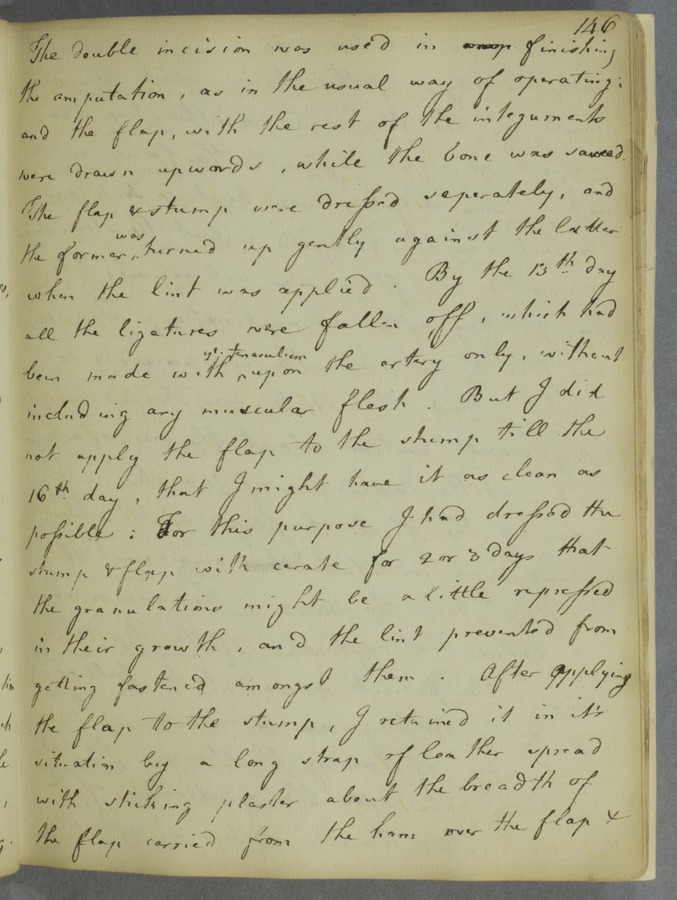 146
The double incision was used in finishing
the amputation, as in the usual way of operating;
and the flap, with the rest of the integuments
were drawn upwards, while the bone was sawed.
The flap & stump were dressed seperately, and
the former was turned up gently against the latter
when the lint was applied. By the 13th day
all the ligatures were fallen off, which had
been made with ye. tenaculum upon the artery only, without
including any muscular flesh. But I did
not apply the flap to the stump till the
16th day, that I might have it as clean as
possible: For this purpose I had dressed the
stump & flap with cerate for 2 or 3 days that
the granulations might be a little repressed
in their growth, and the lint prevented from
getting fastened amongst them. After applying
the flap to the stump, I retained it in it's
situation by a long strap of leather spread
with sticking plaster about the breadth of
the flap carried from the ham over the flap &